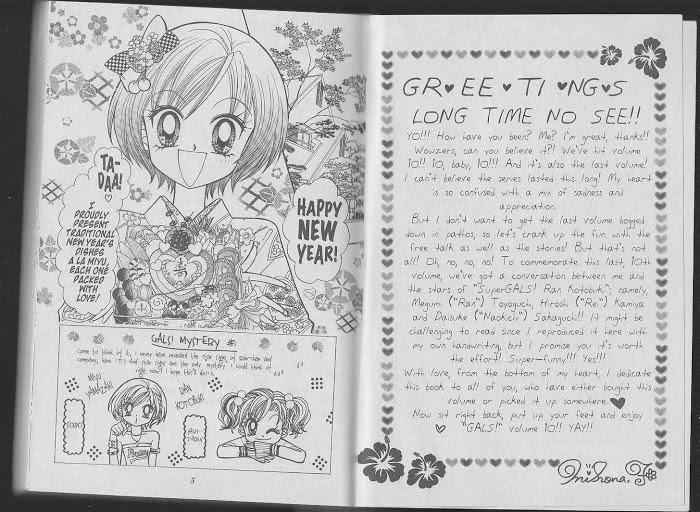 TA-
DAA!
I
PROUDLY
PRESENT
TRADITIONAL
NEW YEAR'S
DISHES
A LA MIYU,
EACH ONE
PACKED
WITH
LOVE!
HAPPY
NEW
YEAR!
GALS! MYSTERY #1
Come to think of it, I never have revealed the star signs of Ran-chan and
company, have I? It's just star signs are the only mystery I could think of
right now! I hope they'll do!
MIYU
YAMAZAKI
RAN
KOTOBUKI
5
GREETINGS
LONG TIME NO SEE!!
YO!!! How have you been? Me? I'm great, thanks!!
Wowzers, can you believe it?! We've hit volume
10!! 10, baby, 10!!! And it's also the last volume!
I can't believe the series lasted this long! My heart
is so confused with a mix of sadness and
appreciation.
But I don't want to get the last volume bogged
down in pathos, so let's crank up the fun with the
free talk as well as the stories! But that's not
all! Oh, no, no, no! To commemorate this last, 10th
volume, we've got a conversation between me and
the stars of "SuperGALS! Ran Kotobuki"; namely,
Megumi ("Ran") Toyoguchi, Hiroshi ("Rei") Kamiya
and Daisuke ("Naokichi") Sakaguchi!! It might be
challenging to read since I reproduced it here with
my own handwriting, but I promise you it's worth
the effort! Super-funny!!! Yes!!!
With love, from the bottom of my heart, I dedicate
this book to all of you, who have either bought this
volume or picked it up somewhere.
Now sit right back, put up your feet and enjoy
"GALS!" volume 10!! YAY!!